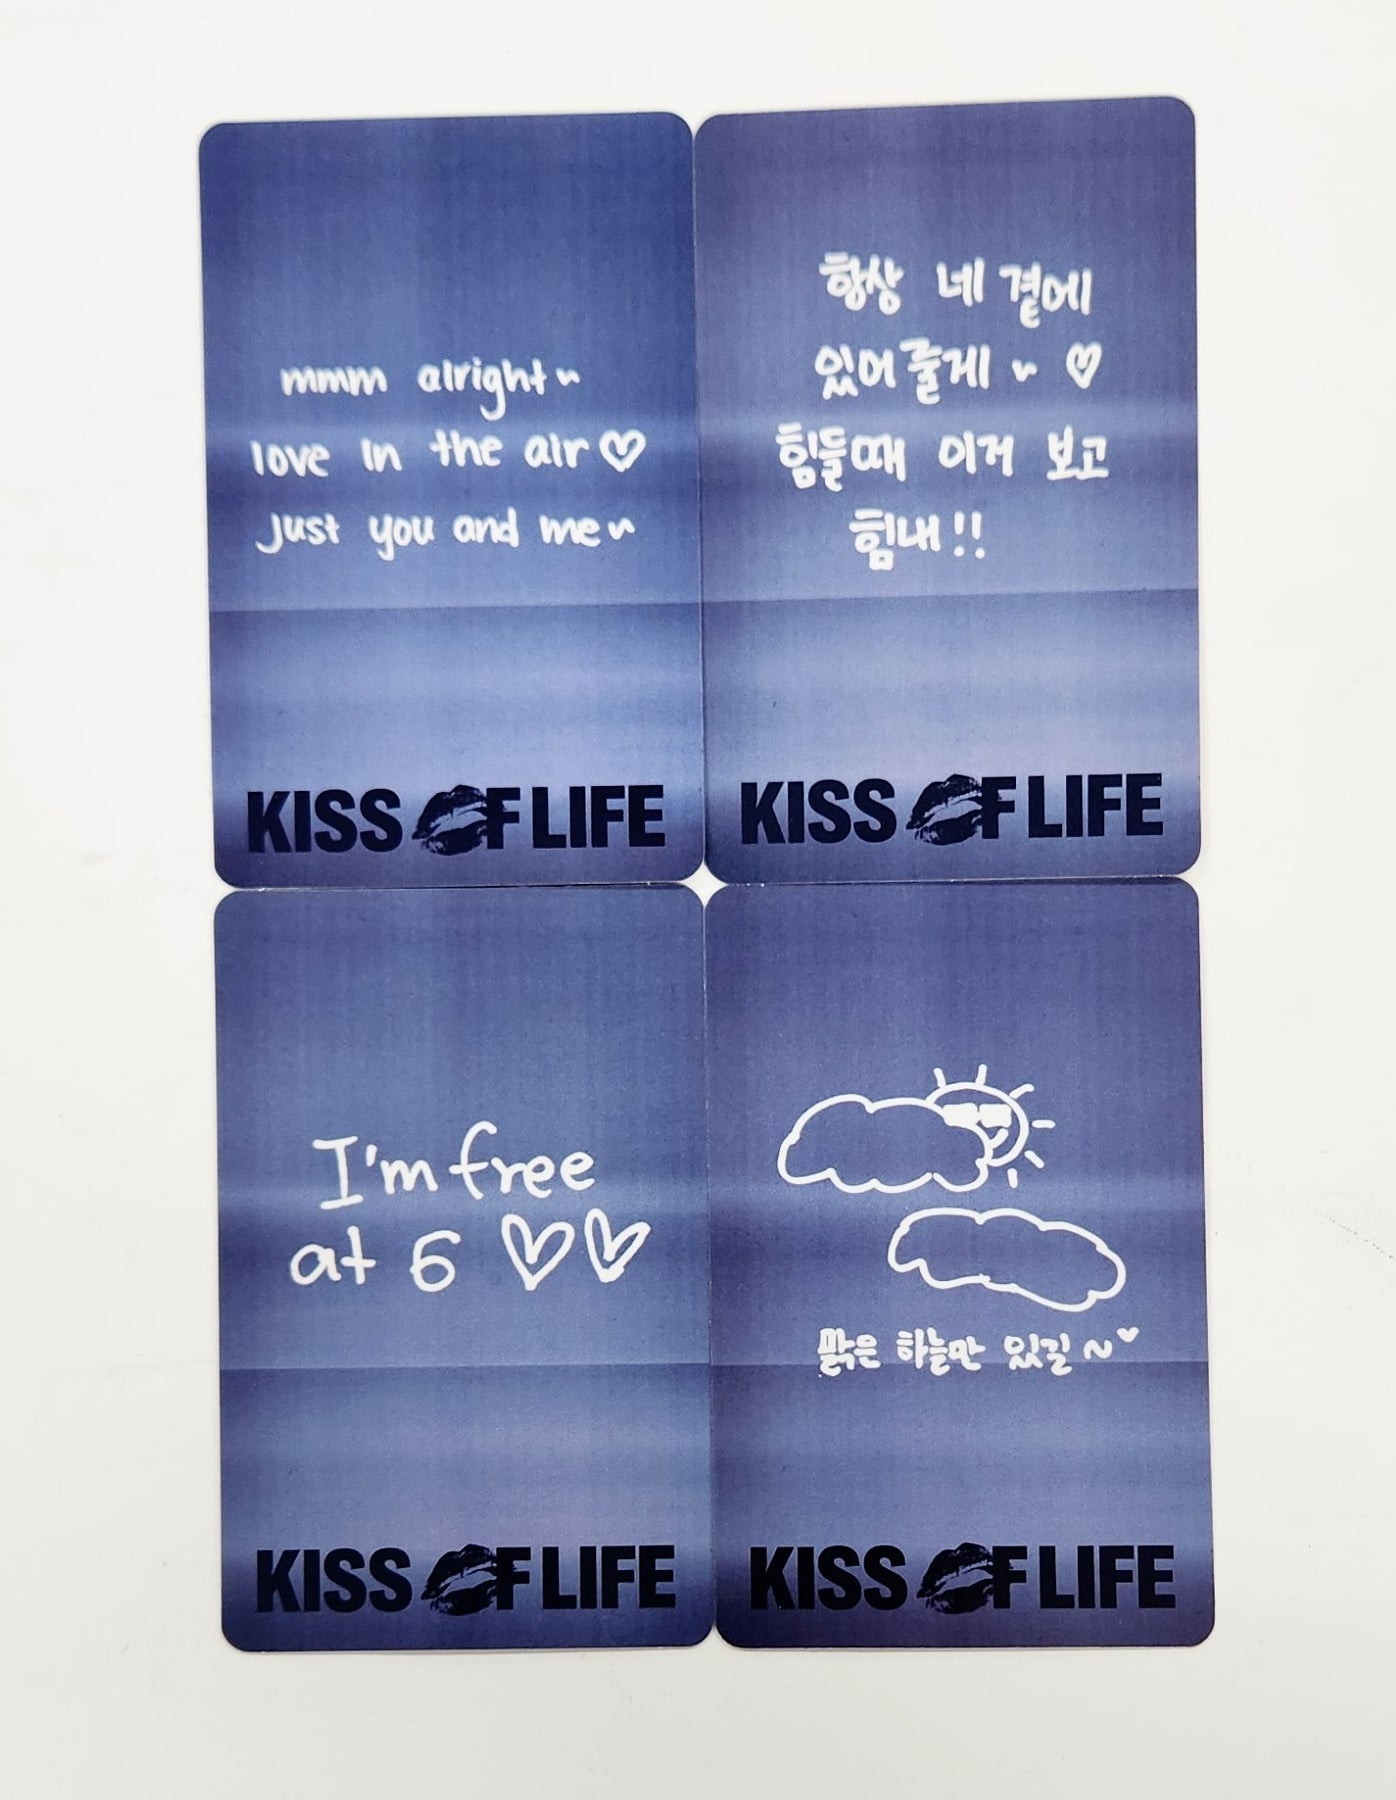 mmm alright~
love in the air♡
just you and me~
KISS OF LIFE
항상 네 곁에
있어줄게~ ♡
힘들때 이거 보고
힘내!!
KISS OF LIFE
I'm free
at 6 ♡♡
KISS OF LIFE
맑은 하늘만 있길~♥
KISS OF LIFE